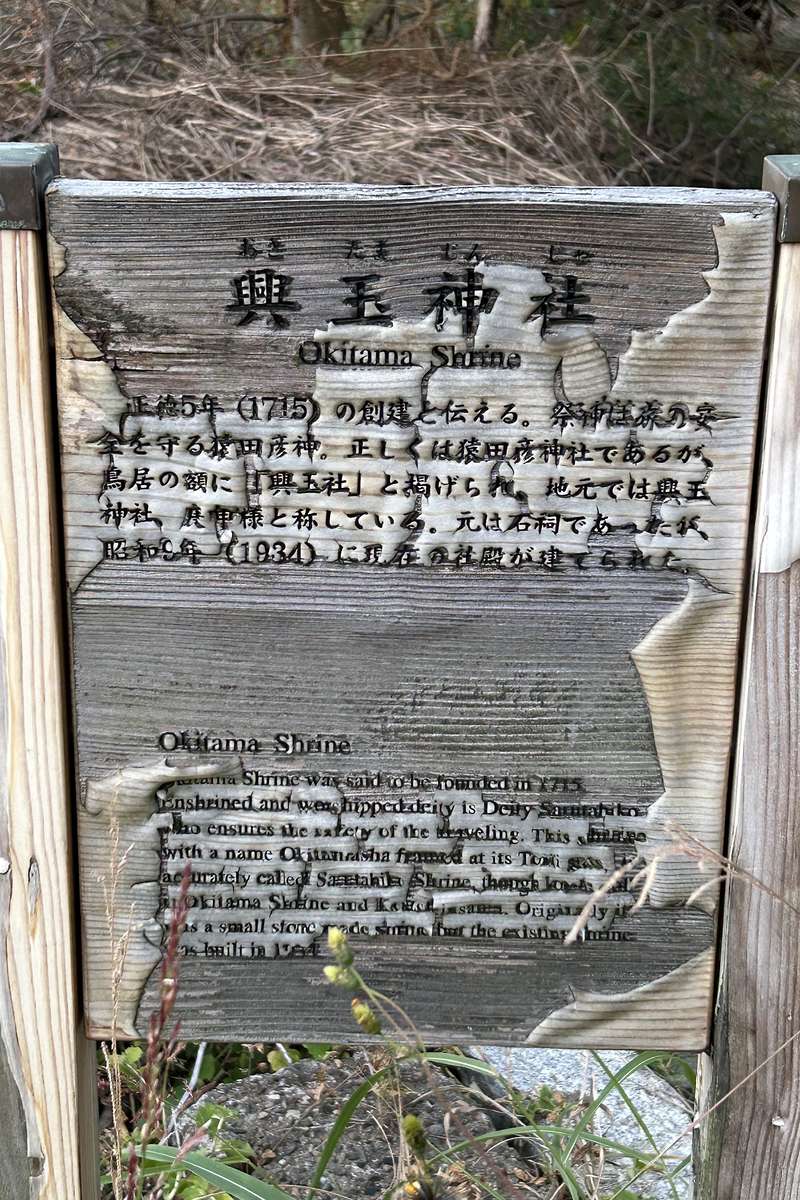 おき たま じん じゃ
興玉神社
Okitama Shrine
正徳5年（1715）の創建と伝える。祭神は旅の安
全を守る猿田彦神。正しくは猿田彦神社であるが、
鳥居の額に「興玉社」と掲げられ、地元では興玉
神社、庚申様と称している。元は石祠であったが、
昭和9年（1934）に現在の社殿が建てられた。
Okitama Shrine
Okitama Shrine was said to be founded in 1715.
Enshrined and worshipped deity is Deity Sarutahiko
who ensures the safety of the traveling. This shrine
with a name Okitamasha framed at its Torii gate, is
accurately called Sarutahiko Shrine, though
Okitama Shrine and Originally it
was a small stone made shrine, but the existing shrine
was built in 1934.